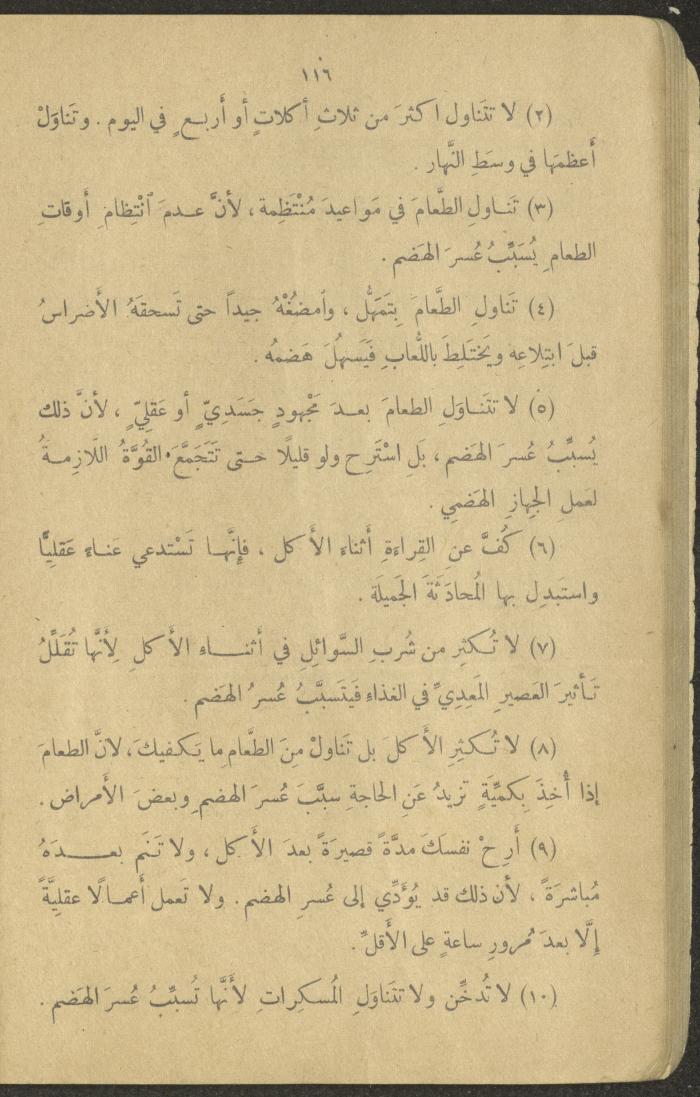 ١١٦
(٢) لا تتَناول اكثرَ من ثلاثِ أكلاتٍ أو أَربعٍ في اليوم . وتَناوَلْ
أَعظمَها في وسَطِ النَّهار .
(٣) تَنـاولِ الطَّعامَ في مَواعيدَ مُنْتَظِمة ، لأنَّ عـدمَ ٱنْتِظامِ أَوقاتِ
الطعامِ يُسَبِّبُ عُسرَ الهَضم .
(٤) تَناولِ الطَّعامَ بِتَمَهُّل ، وٱمضُغْهُ جيداً حتى تَسحقَهُ الأَضراسُ
قبلَ ابتِلاعِه ويَختَلِطَ باللُّعابِ فَيَسهُلَ هَضمُه .
(٥) لا تتَنـاوَلِ الطعامَ بعـدَ مَجْهودٍ جَسَدِيّ أو عَقلِيّ ، لأنَّ ذلك
يُسبِّبُ عُسرَ الهَضم ، بَلِ اسْتَرِح ولو قليلًا حـتى تَتَجَمَّعَ القُوَّةُ اللَّازِمـةُ
لعملِ الجِهازِ الهَضمي .
(٦) كُفَّ عنِ القِراءةِ أَثناء الأَكل ، فإِنَّهـا تَسْتدعي عَناء عَقليًّا
واستَبدِل بها المُحادَثَةَ الجَميلَة .
(٧) لا تُـكثِر من شُربِ السَّوائلِ في أَثنـــاء الأَكلِ لِأَنَّها تُقَلِّلُ
تَـأثيرَ العَصيرِ المَعِدِيِّ في الغذاءِ فيَتَسبَّبُ عُسرُ الهَضم .
(٨) لا تُـكثِرِ الأَكلَ بل تَناولْ مِنَ الطَّعامِ ما يَكفيكَ ، لانَّ الطعامَ
إذا أُخِذَ بِكمِّيَّةٍ تزيدُ عَنِ الحاجةِ سبَّبَ عُسرَ الهضمِ وبعضَ الأَمراض .
(٩) أَرِحْ نفسَكَ مدَّةً قصيرَةً بعدَ الأَكل ، ولا تَنَم بعـــدَهُ
مُباشَرَةً ، لأن ذلك قد يُؤَدِّي إلى عُسرِ الهضم . ولا تَعمل أَعمـالًا عقليَّةً
إِلَّا بعدَ مُرورِ ساعةٍ على الأَقلِّ .
(١٠) لا تُدخِّن ولا تتَناوَلِ المُسكِراتِ لأَنَّها تُسبِّبُ عُسرَ الهَضم .